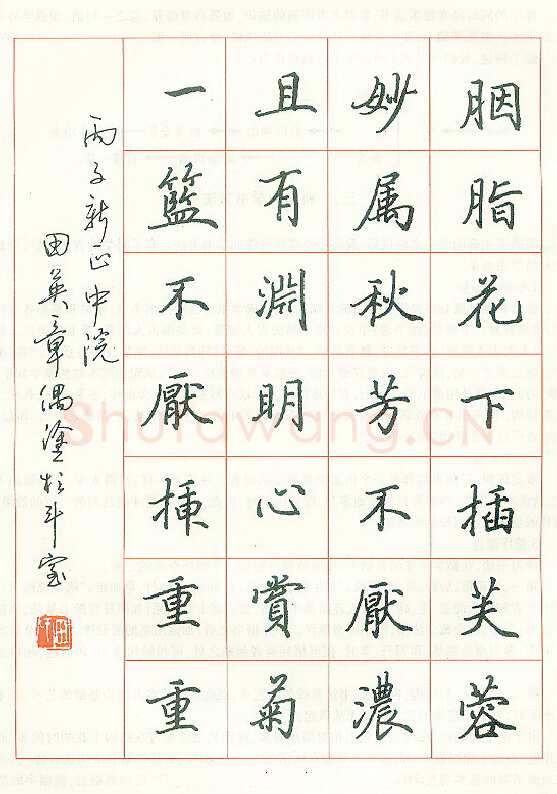 胭脂花下插芙蓉
妙属秋芳不厭濃
且有淵明心賞菊
一籃不厭插重重
丙子新正中院
田英章偶塗於斗室
Shufawang.CN